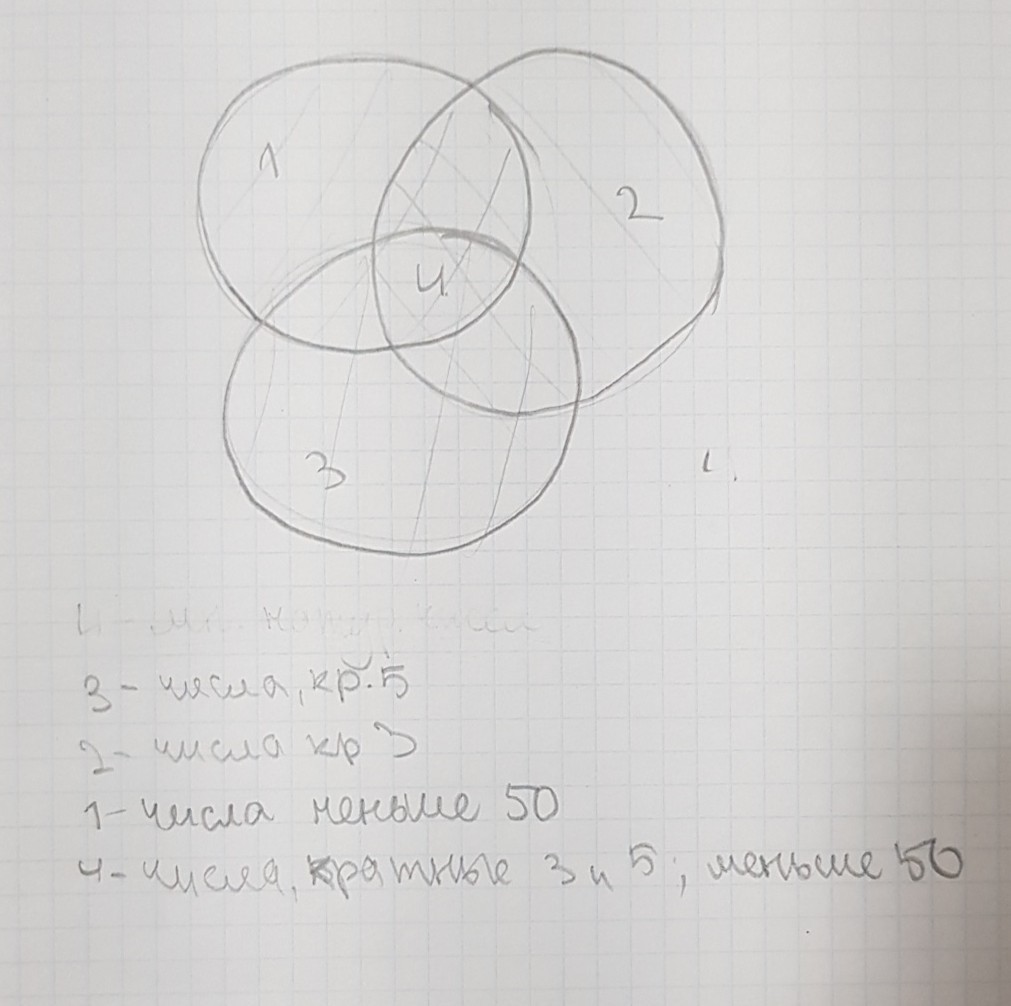 1
2
4
3
3 - числа, кр. 5
2 - числа кр 3
1 - числа меньше 50
4 - числа, кратные 3 и 5; меньше 50